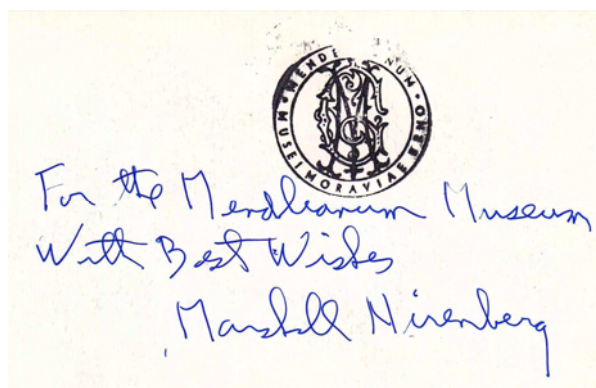 MENDE NUM • MUSEI MORAVIAE BRNO •
For the Mendleanum Museum
With Best Wishes
Marshall Nirenberg